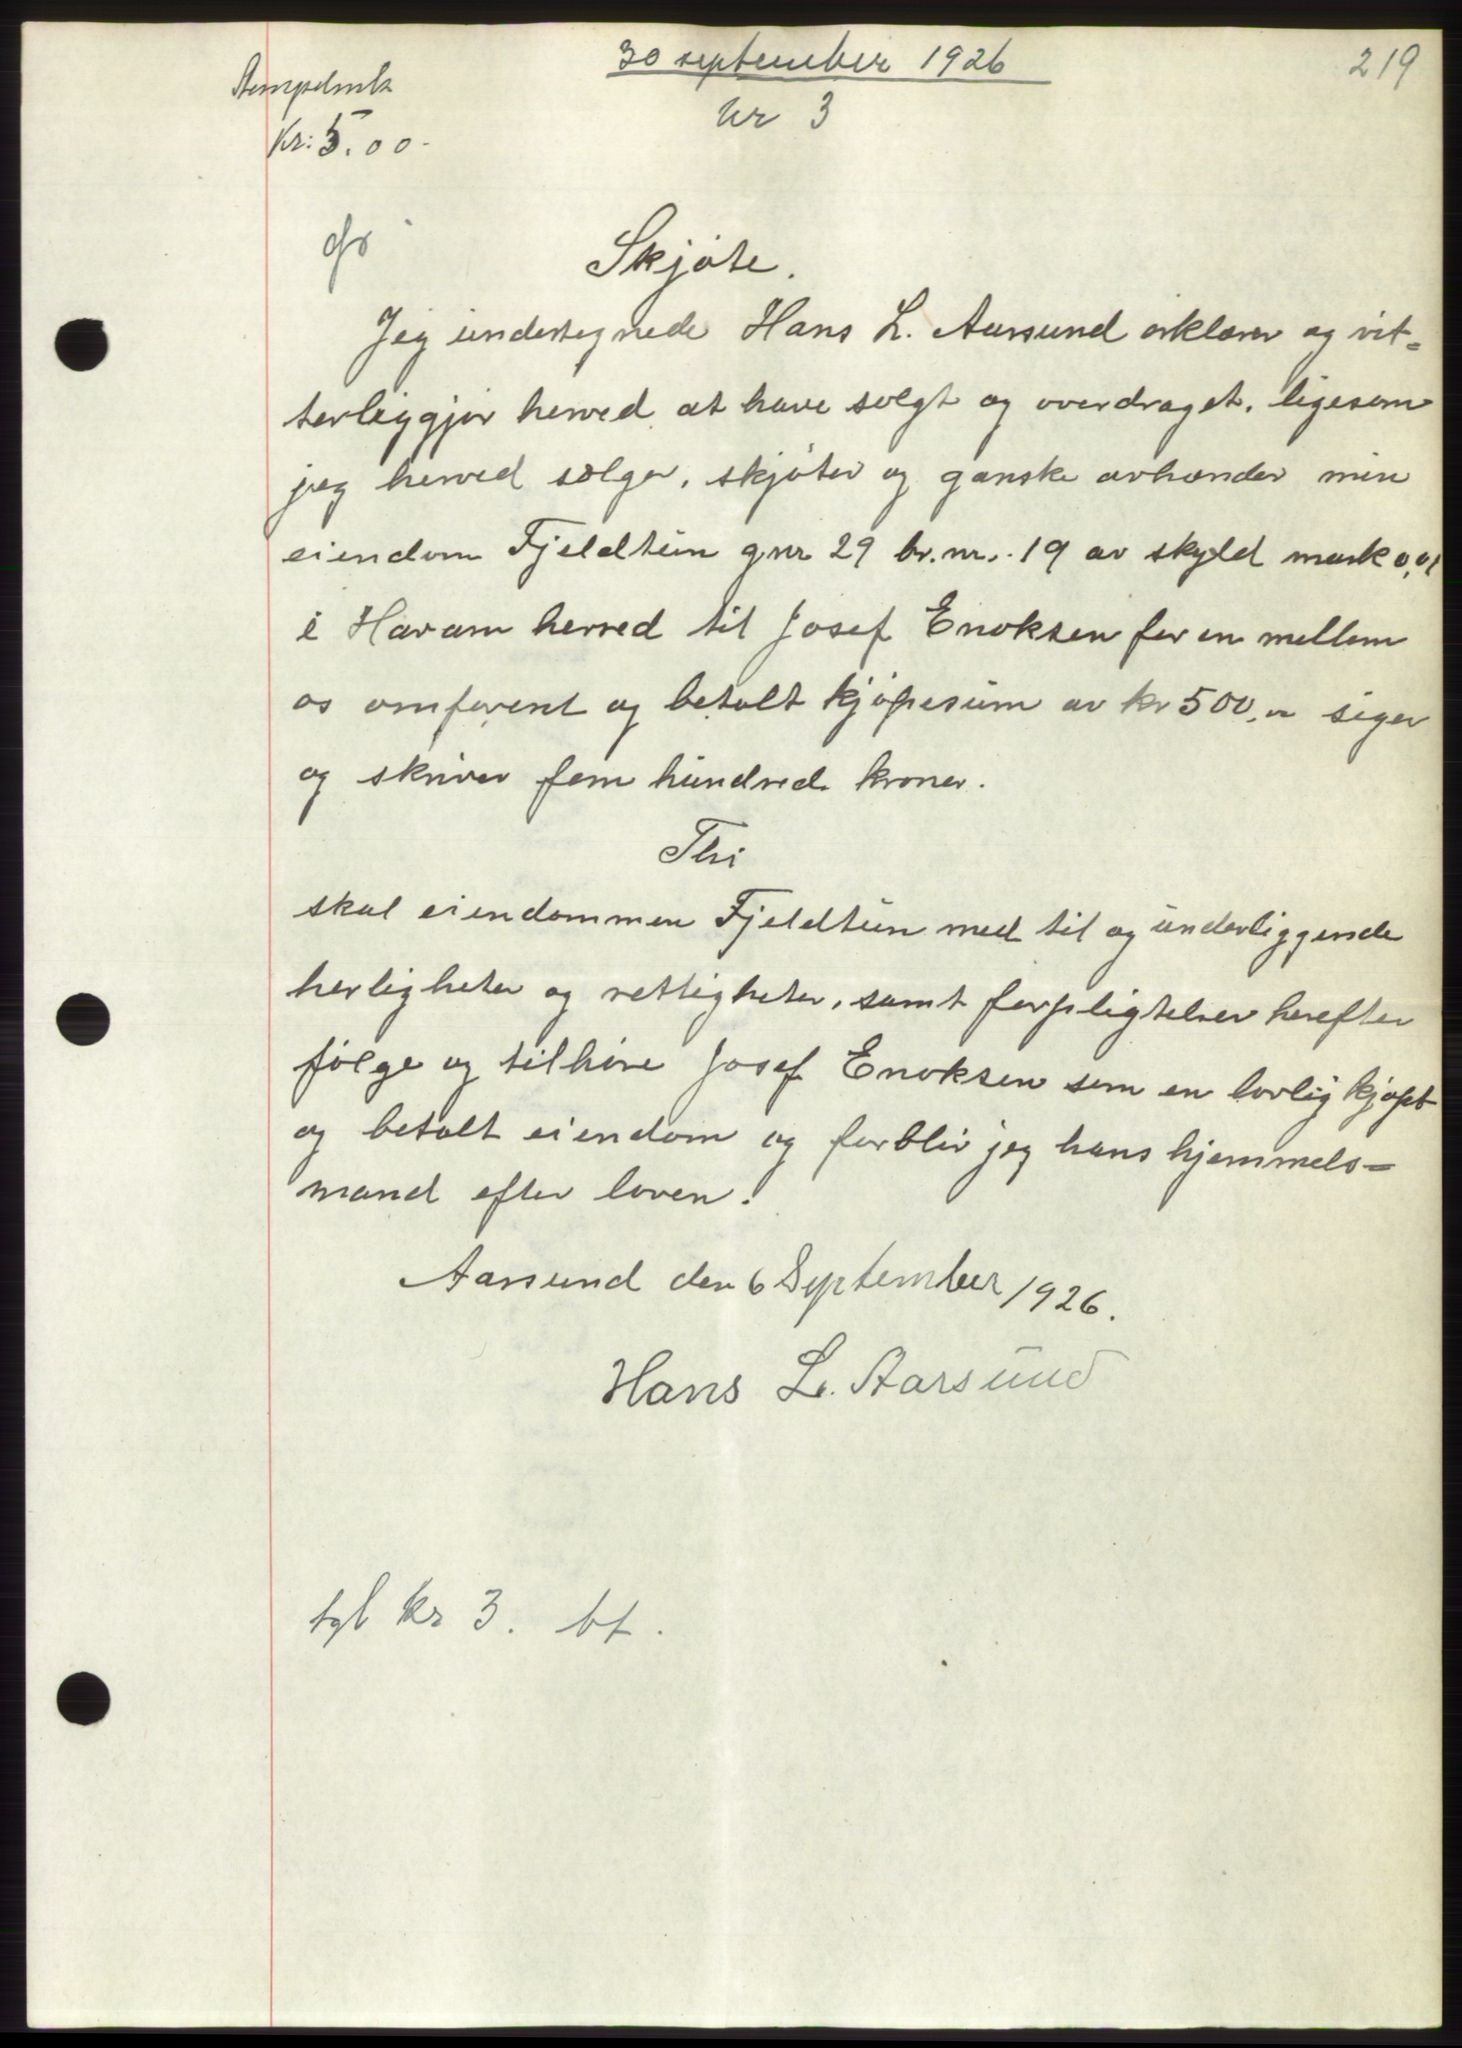 30 september 1926
219
Stempelmk
Kr: 5.00-
nr 3
Skjøte.
Jeg undertegnede Hans L. Aarsund erklærer og vit=
terliggjør herved at have solgt og overdraget, ligesom
jeg herved sælger, skjøter og ganske avhænder min
eiendom Fjeldtun gnr 29 br.nr. 19 av skyld mark 0,01
i Haram herred til Josef Enoksen for en mellem
os omforent og betalt kjøpesum av kr 500,00 siger
og skriver fem hundred kroner.
Thi
skal eiendommen Fjeldtun med til og underliggende
herligheter og rettigheter, samt forpligtelser herefter
følge og tilhøre Josef Enoksen som en lovlig kjøpt
og betalt eiendom og forblir jeg hans hjemmels=
mand efter loven.
Aarsund den 6 September 1926.
Hans L. Aarsund
tgl kr 3. bt.